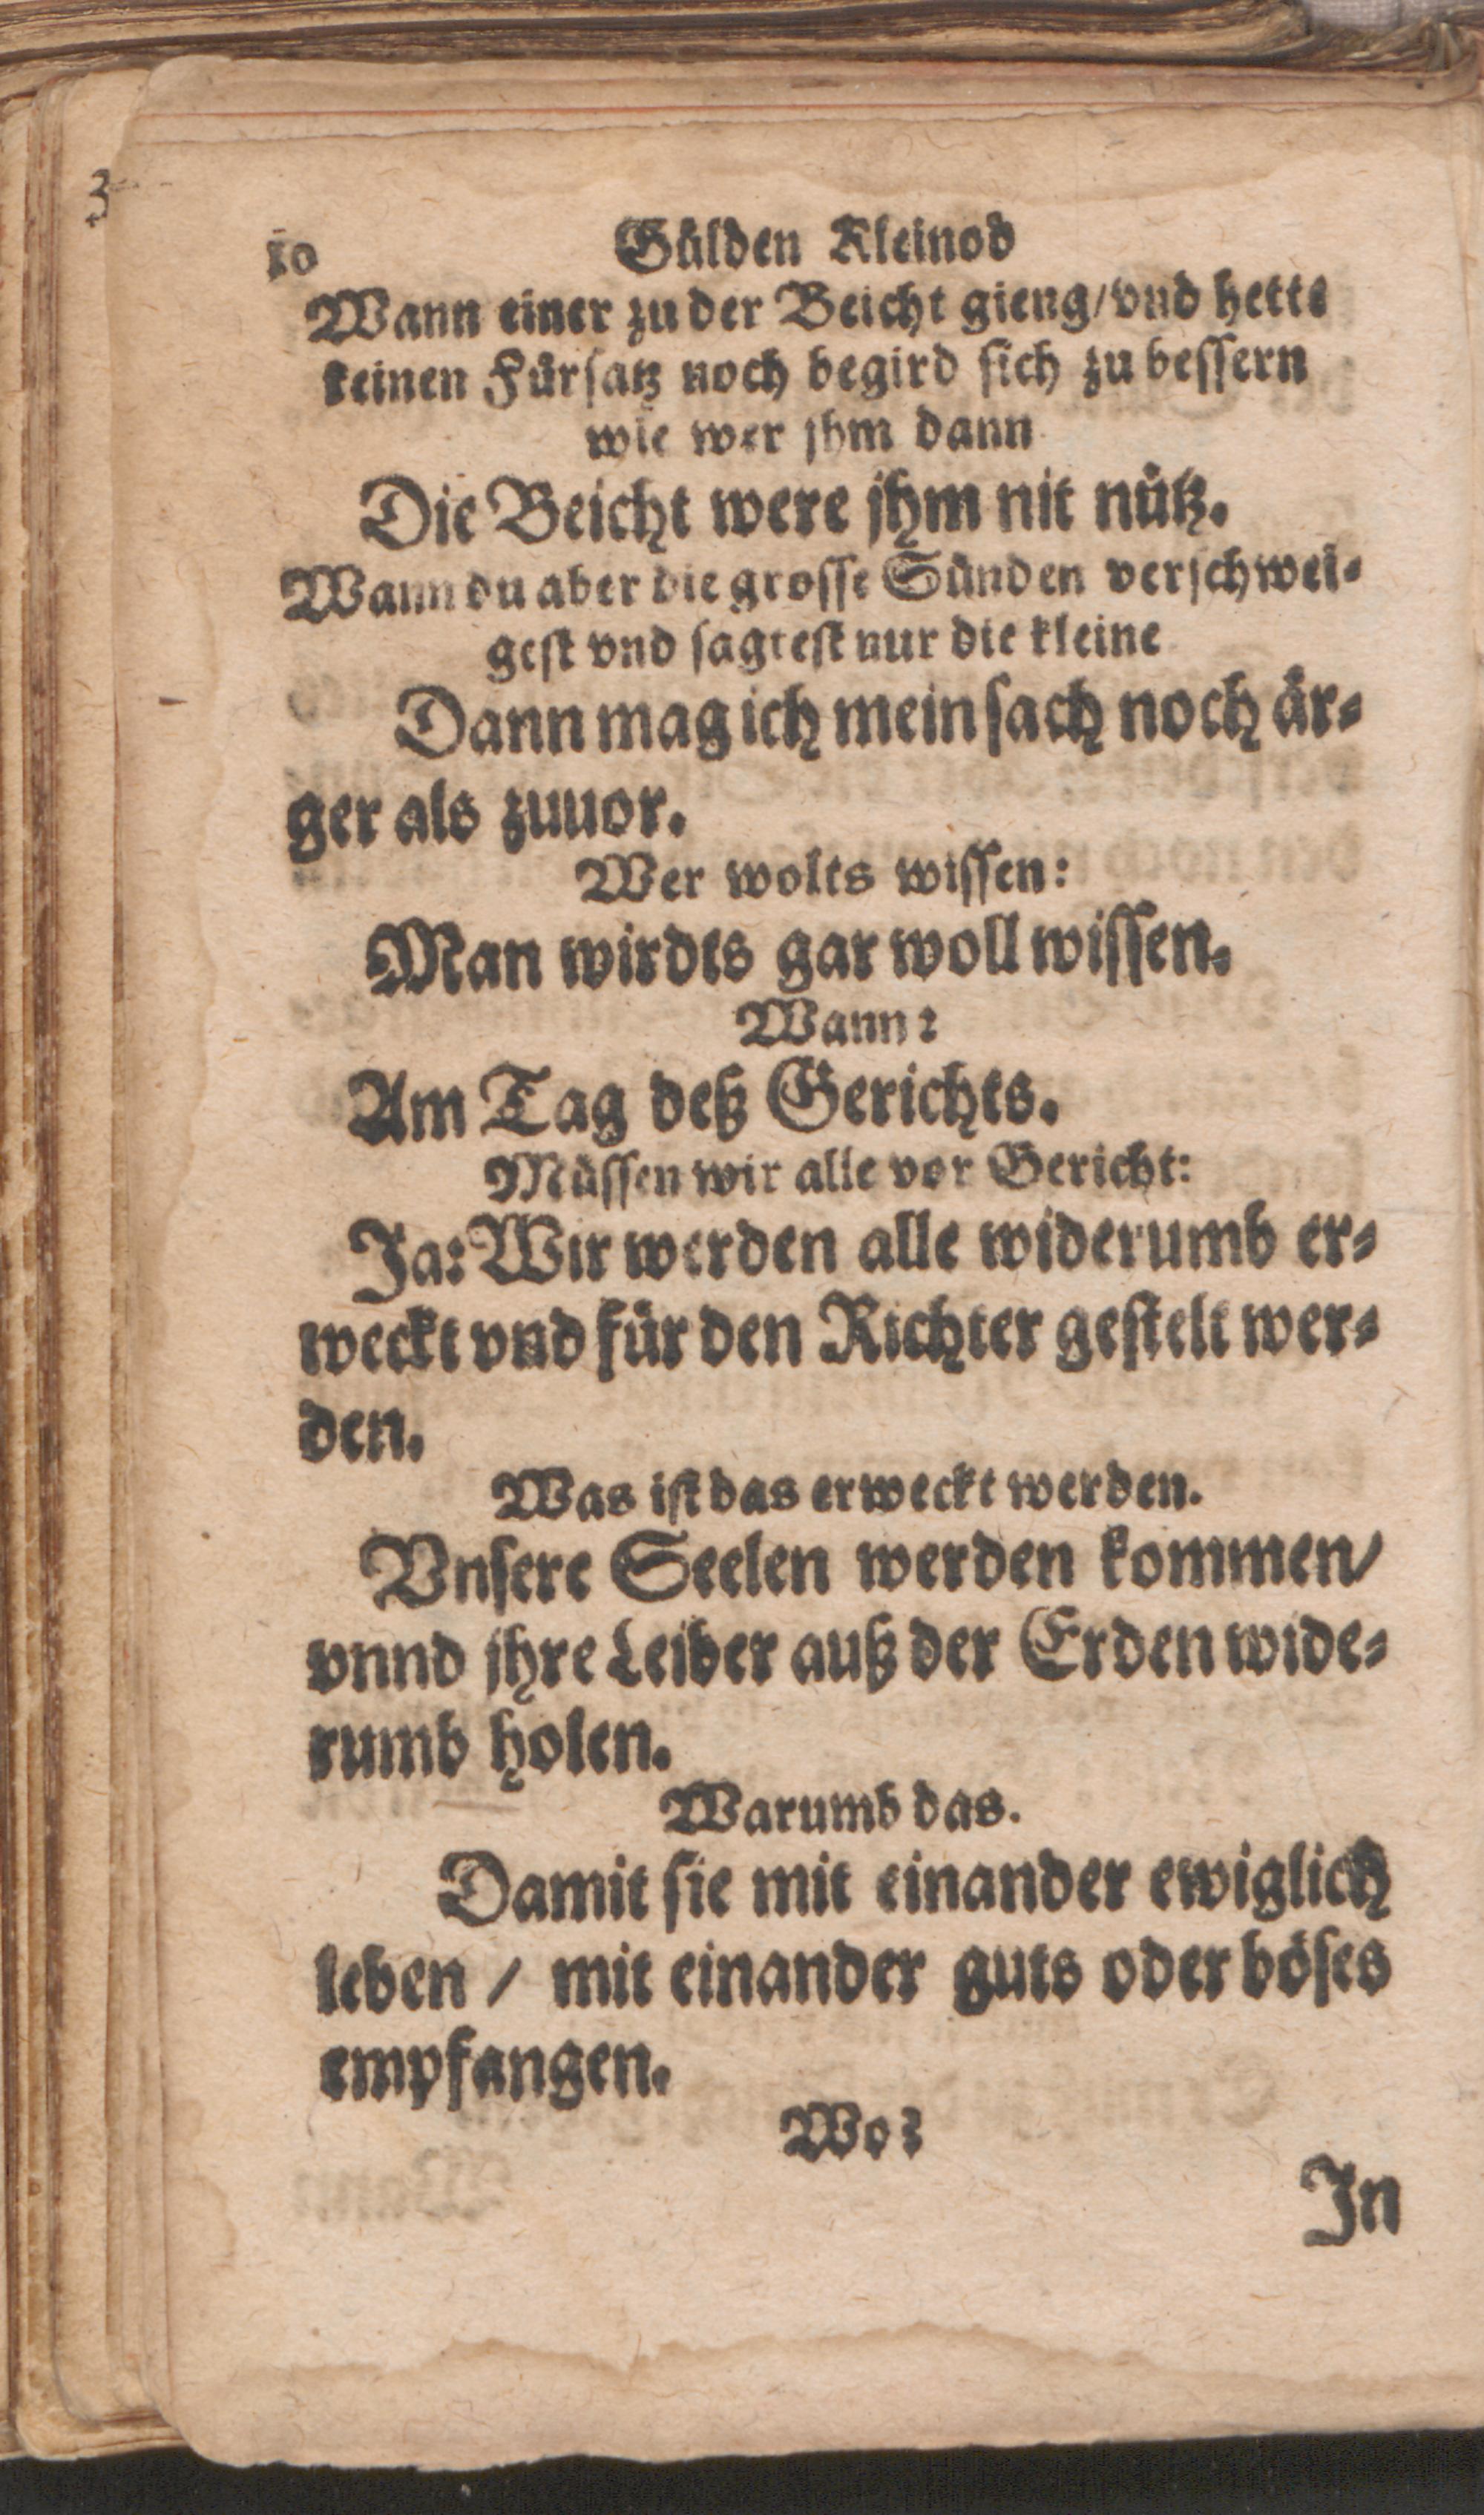 3
10 Gülden Kleinod
Wann einer zu der Beicht gieng/ vnd hette
keinen Fürsatz noch begird sich zu bessern
wie wer jhm dann
Die Beicht were jhm nit nütz.
Wann du aber die grosse Sünden verschwei-
gest vnd sagtest nur die kleine
Dann mag ich mein sach noch är-
ger als zuuor.
Wer wolts wissen:
Man wirdts gar woll wissen.
Wann?
Am Tag deß Gerichts.
Müssen wir alle vor Gericht:
Ja: Wir werden alle widerumb er-
weckt vnd für den Richter gestelt wer-
den.
Was ist das erweckt werden.
Vnsere Seelen werden kommen/
vnnd jhre Leiber auß der Erden wide-
rumb holen.
Warumb das.
Damit sie mit einander ewiglich
leben / mit einander guts oder böses
empfangen.
Wo?
In